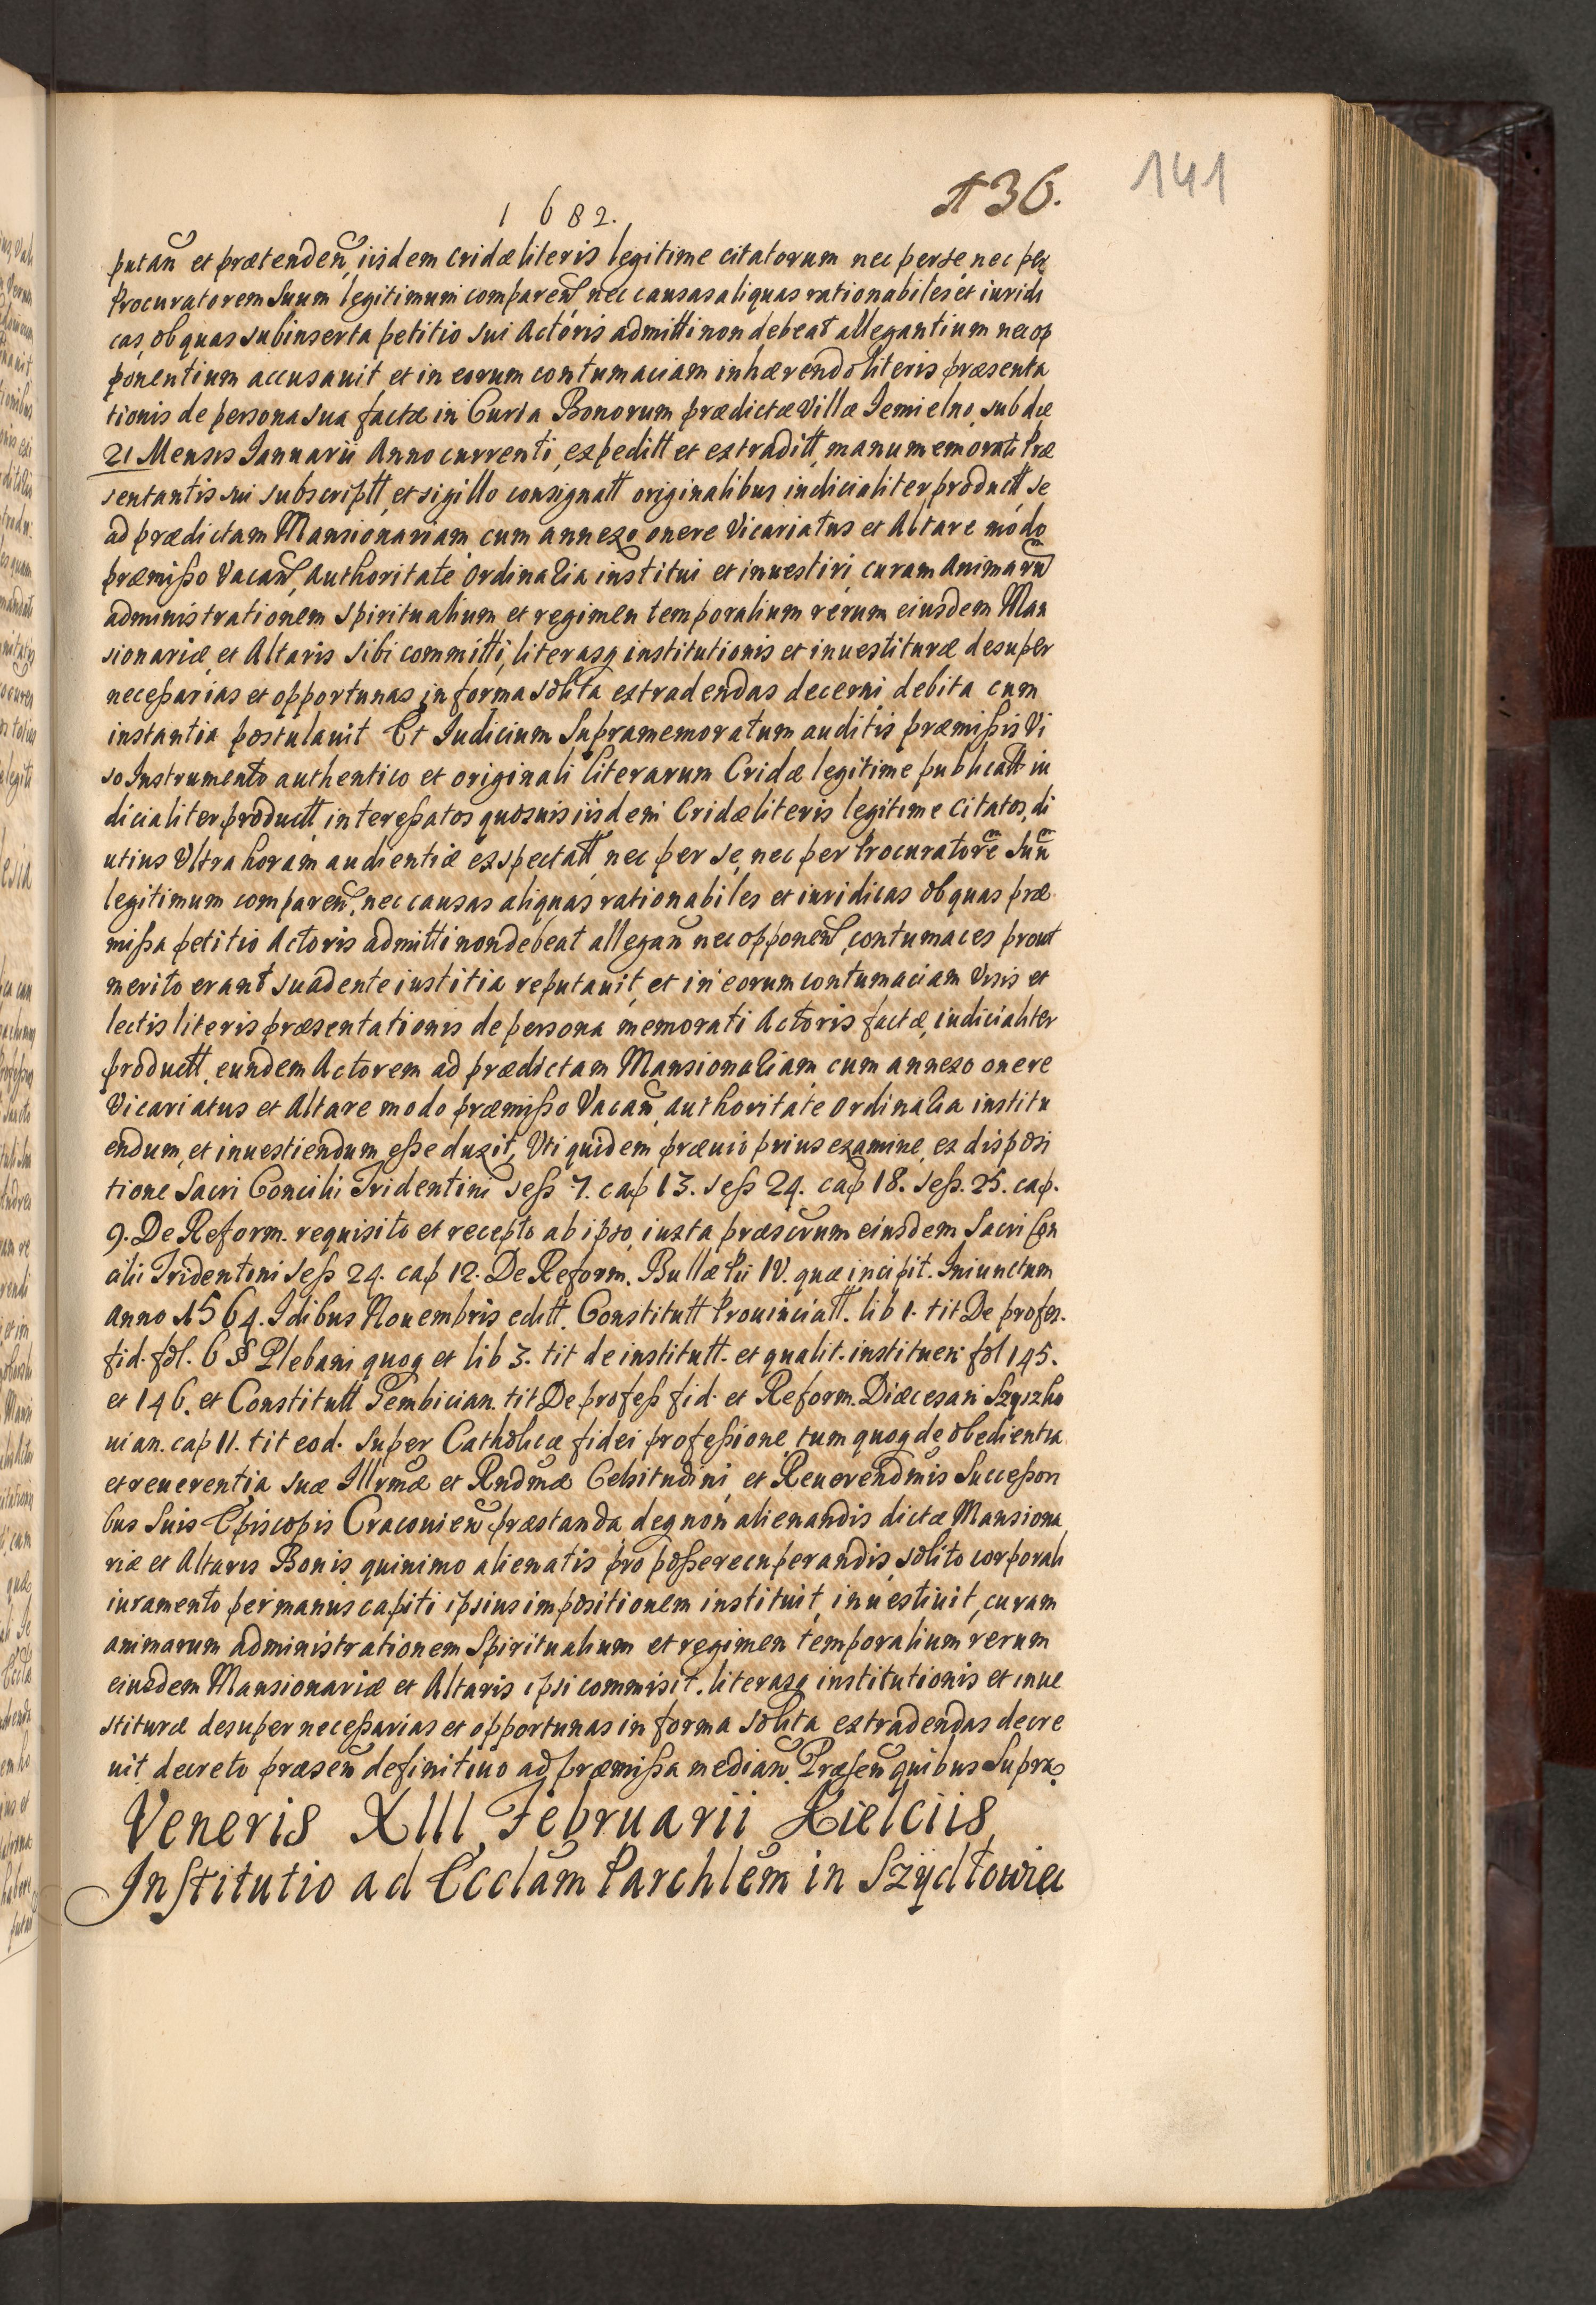 141
136.
1682.
putan̄ et prætenden̄, iisdem Cridæ literis legitime citatorum nec per se, nec per
Procuratorem Suum legitimum comparen̄ nec causas aliquas rationabiles et iuridi
cas, ob quas subinserta petitio sui Actoris admitti non debeat allegantium nec op
ponentium accusauit et in eorum contumaciam inhærendo literis præsenta
tionis de persona sua factæ in Curia Bonorum prædictæ Villæ Jemielno, sub die
21 Mensis Januarii Anno currenti, expeditt et extraditt, manu memorati Præ
sentantis sui subscriptt, et sigillo consignatt originalibus iudicialiter productt se
ad prædictam Mansionariam cum annexo onere Vicariatus et Altare modo
præmisso Vacan̄, Authoritate Ordinaria institui et inuestiri, curam Animarū
administrationem Spiritualium et regimen temporalium rerum eiusdem Man
sionariæ et Altaris sibi committi, literasq institutionis et inuestituræ desuper
necessarias et opportunas, in forma solita extradendas decerni debita cum
instantia postulauit Et Judicium Supramemoratum auditis præmissis Vi
so Instrumento authentico et originali literarum Cridæ legitime publicatt iu
dicialiter productt, interessatos quosuis iisdem Cridæ literis legitime citatos, di
utius Vltra horam audientiæ exspectatt, nec per se, nec per Procuratorē Suū
legitimum comparen̄, nec causas aliquas rationabiles et iuridicas ob quas præ
missa petitio Actoris admitti non debeat allegan̄ nec opponen̄, contumaces prout
merito erant suadente iustitia reputauit, et in eorum contumaciam Visis et
lectis literis præsentationis de persona memorati Actoris factæ, iudicialiter
productt, eundem Actorem ad prædictam Mansionariam cum annexo onere
Vicariatus et Altare modo præmisso Vacan̄, Authoritate Ordinaria institu
endum, et inuestiendum esse duxit, Vti quidem præuio prius examine, ex disposi
tione Sacri Concilii Tridentini sess 7. cap 13. sess 24. cap 18. sess. 25. cap.
9. De Reform. requisito et recepto ab ipso, iuxta præscrum eiusdem Sacri Con
cilii Tridentini sess 24. cap 12. De Reform. Bullæ Pii IV. quæ incipit. Iniunctum
anno 1564. Idibus Nouembris editt. Constitutt Prouinciatt. lib 1. tit De profes.
fid. fol. 6 § Plebani quoq et lib 3. tit de institutt. et qualit. instituen fol 145.
et 146. et Constitutt Gembician. tit De profess fid. et Reform. Diæcesani Szyszko
uian. cap 11. tit eod. Super Catholicæ fidei professione, tum quoq de obedientia
et reuerentia, suæ Illrmæ et Rndmæ Celsitudini, et Reuerendmis Successori
bus Suis Episcopis Cracouien̄ præstanda, deq non alienandis dictæ Mansiona
riæ et Altaris Bonis quinimo alienatis pro posse recuperandis, solito corporali
iuramento per manus capiti ipsius impositionem instituit, inuestiuit, curam
animarum administrationem Spiritualium et regimen temporalium rerum
eiusdem Mansionariæ et Altaris ipsi commisit. literasq institutionis et inue
stituræ desuper necessarias et opportunas in forma solita extradendas decre
uit decreto præsen̄ definitiuo ad præmissa median̄. Præsen̄ quibus Supra.
Veneris XIII Februarii Kielciis
Institutio ad Ecclam Parchlem in Szydłowiec